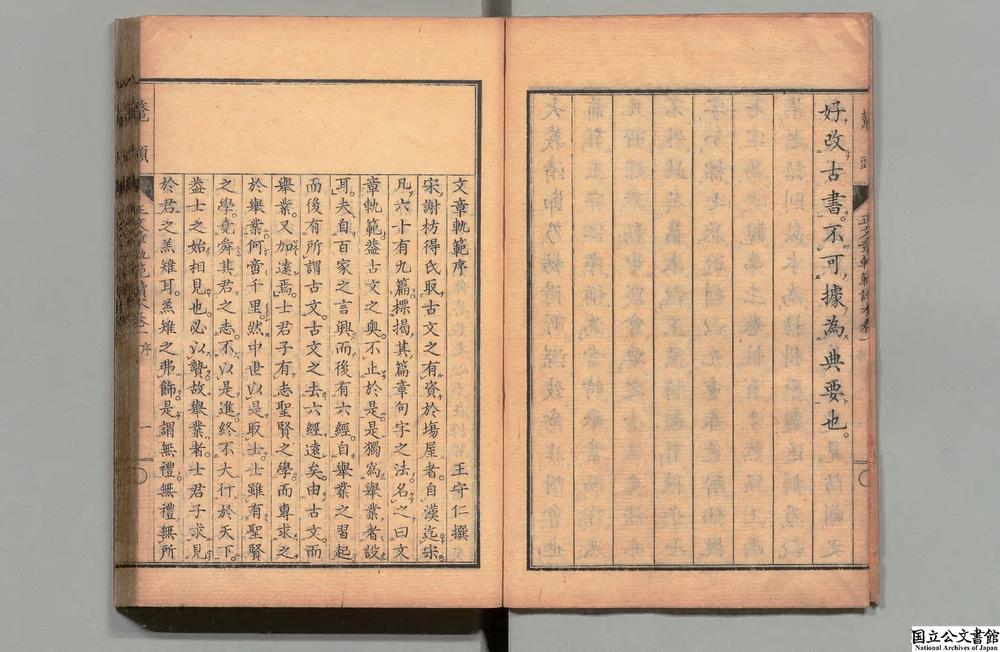 好改古書。不可據為典要也。
文章軌範序
王守仁撰
宋謝枋得氏取古文之有資於塲屋者。自漢迄宋
凡六十有九篇。標揭其篇章句字之法。名之曰文
章軌範。蓋古文之奧不止於是。是獨為舉業者設
耳。夫自百家之言興而後有六經。自舉業之習起
而後有所謂古文。古文之去六經遠矣。由古文而
舉業。又加遠焉。士君子有志聖賢之學而專求之
於舉業。何啻千里。然中世以是取士。士雖有聖賢
之學。堯舜其君之志。不以是進。終不大行於天下。
蓋士之始相見也。必以贄。故舉業者士君子求見
於君之羔雉耳。羔雉之弗飾。是謂無禮。無禮無所
鼇頭
正文章軌範讀本卷一
序
一
国立公文書館
National Archives of Japan